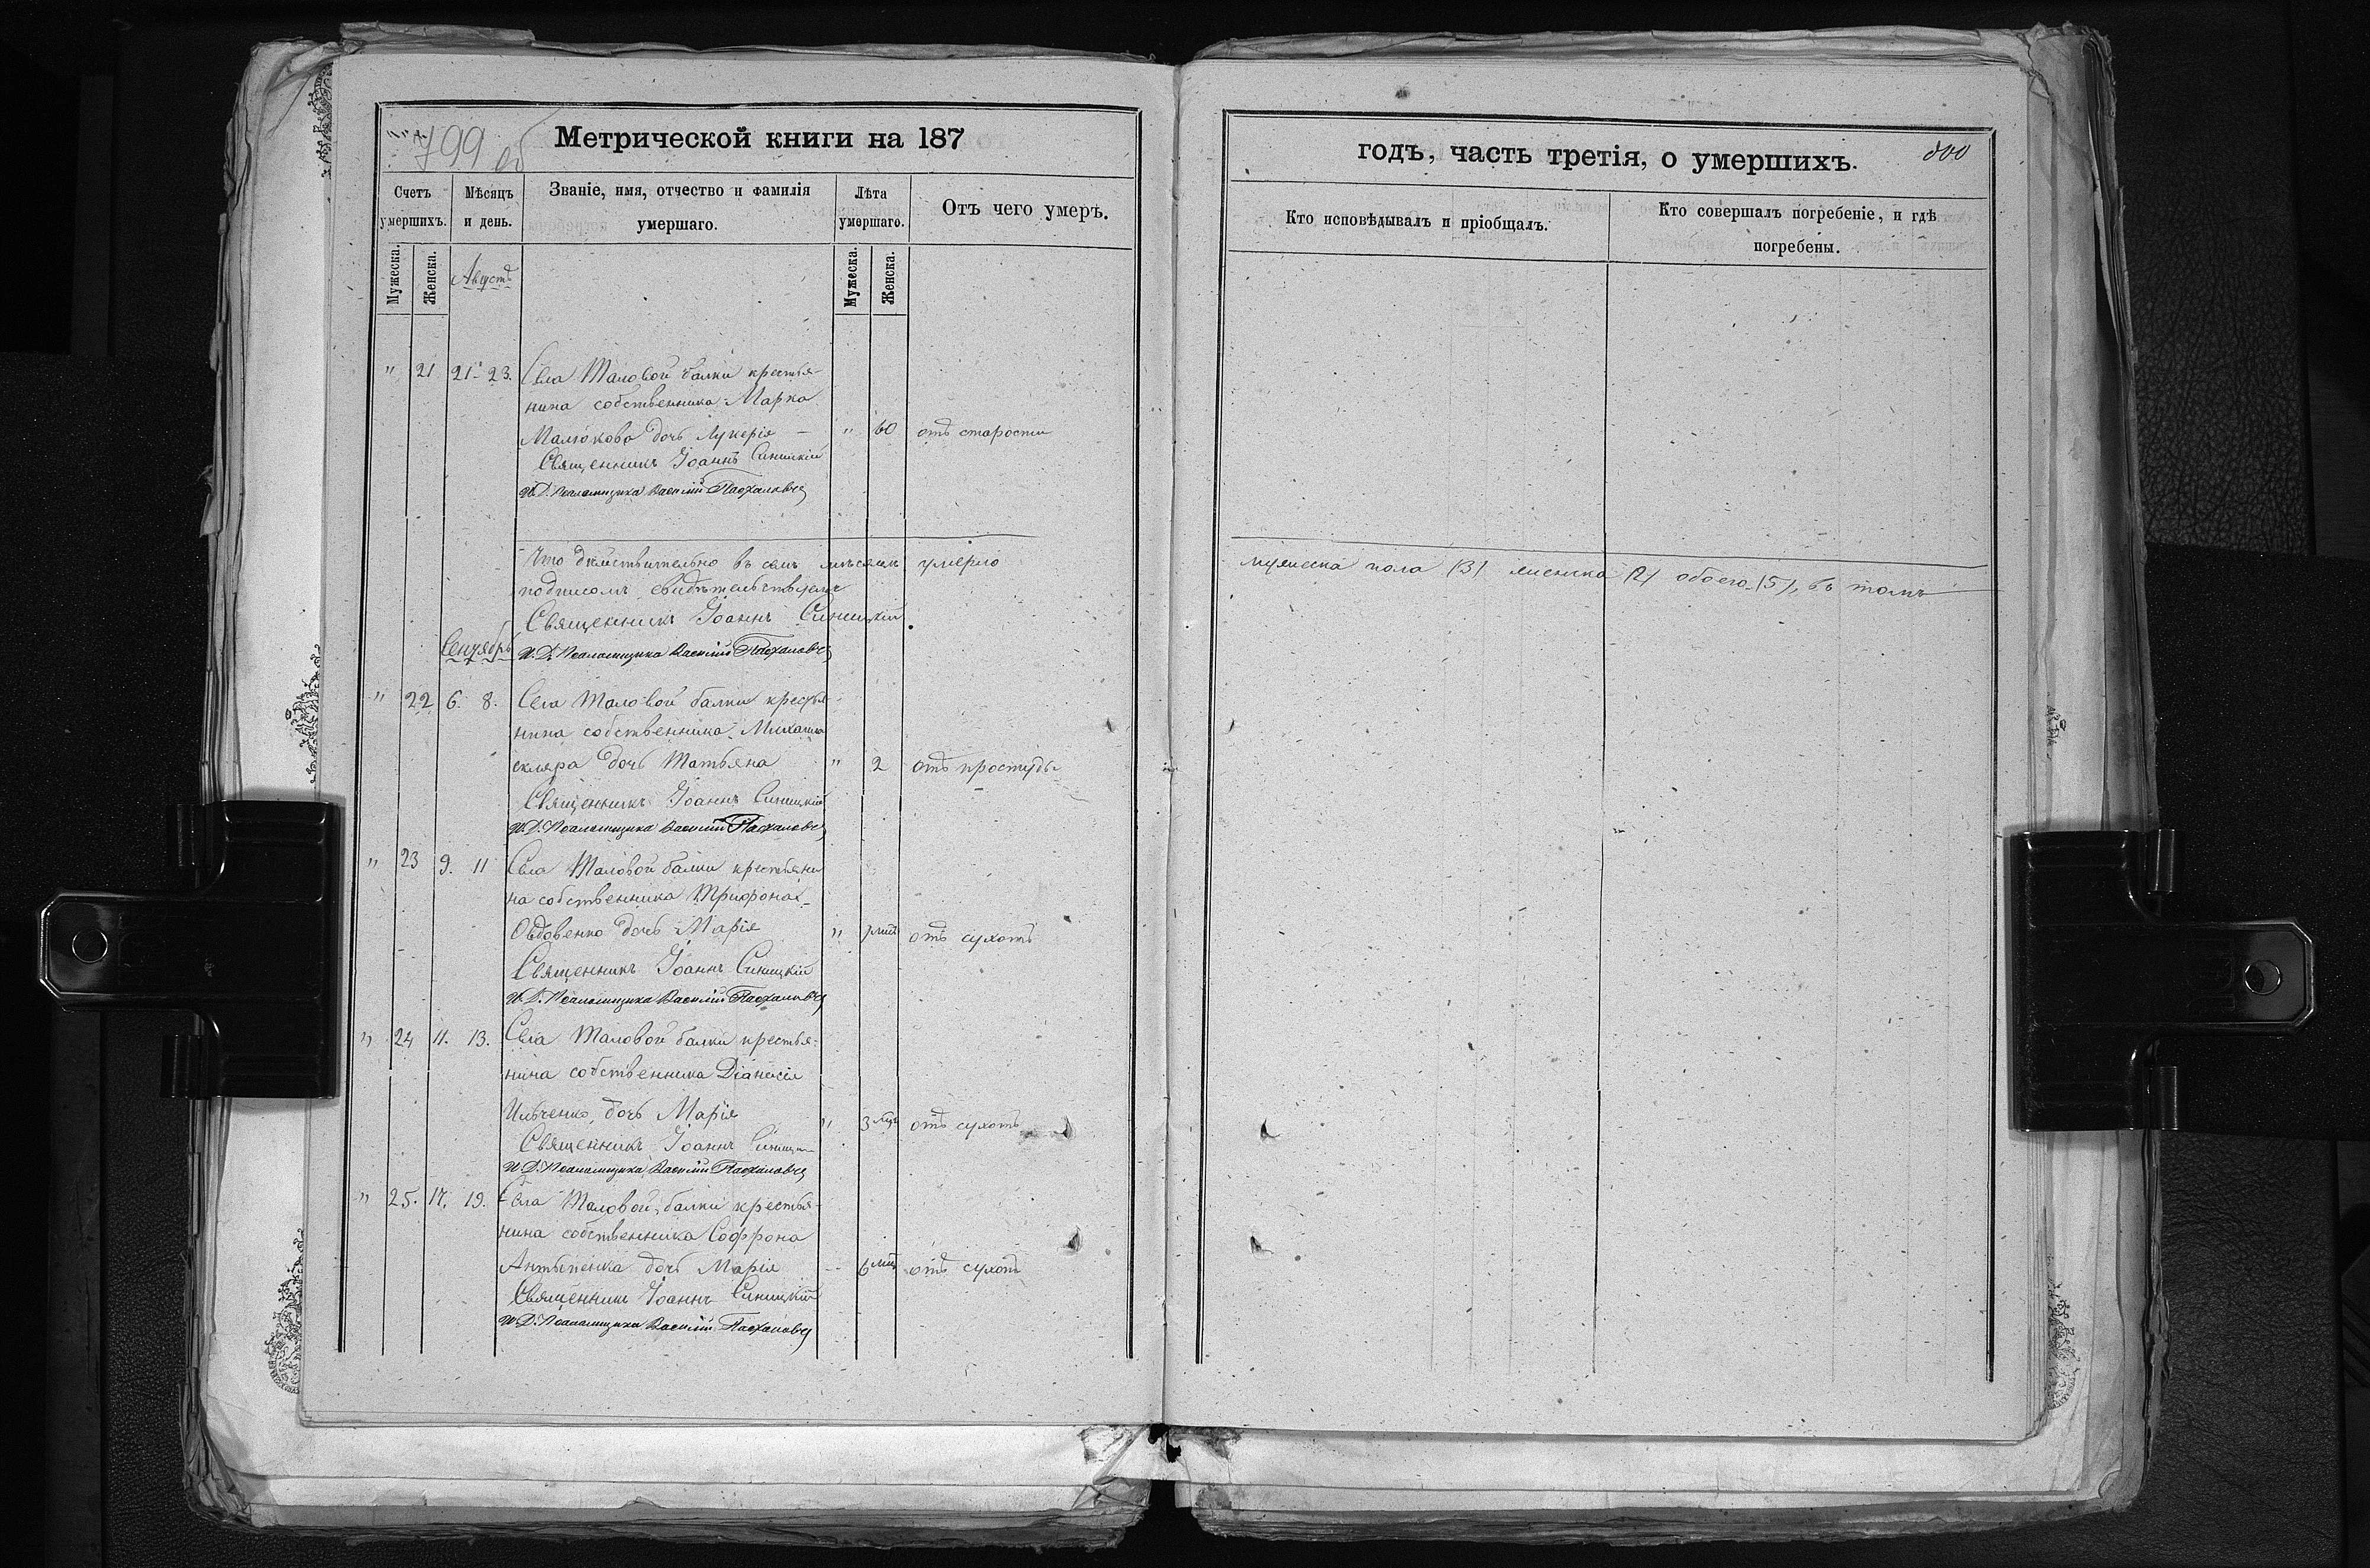 799 об
Метрической книги на 187
Счетъ умершихъ.
Мѣсяцъ и день.
Званіе, имя, отчество и фамилія умершаго.
Лѣта умершаго.
Отъ чего умеръ.
Мужеска.
Женска.
Августъ
Мужеска.
Женска.
" 21 21. 23. Села Таловой балки крестья-
нина собственника Марка
Малюкова дочь Лукерія — " 60 отъ старости
Священникъ Іоаннъ Синицкій
И. Д. Псаломщика Василій
Что действительно въ семъ мѣсяцѣ умерло
подписомъ свидѣтельствуемъ
Священникъ Іоаннъ Синицкій
Сентябрь И. Д. Псаломщика Василій
" 22 6. 8. Села Таловой балки крестья-
нина собственника Михаила
скляра дочь Татьяна " 2 отъ простуды
Священникъ Іоаннъ Синицкій
И. Д. Псаломщика Василій
" 23 9. 11 Села Таловой балки крестьяни
на собственника Трифона
Овдовенко дочь Марія " отъ сухотъ
Священникъ Іоаннъ Синицкій
И. Д. Псаломщика Василій
" 24 11. 13. Села Таловой балки крестья-
нина собственника Діанисія
Ильченко дочь Марія " 3 отъ сухотъ
Священникъ Іоаннъ
И. Д. Псаломщика Василій
" 25. 17. 19. Села Таловой балки крестья-
нина собственника Софрона
дочь Марія 6 отъ сухотъ
Священникъ Іоаннъ Синицкій
И. Д. Псаломщика Василій
годъ, часть третія, о умершихъ.
800
Кто исповѣдывалъ и пріобщалъ.
Кто совершалъ погребеніе, и гдѣ погребены.
мужеска пола (3) женска (2) обоего (5), въ томъ